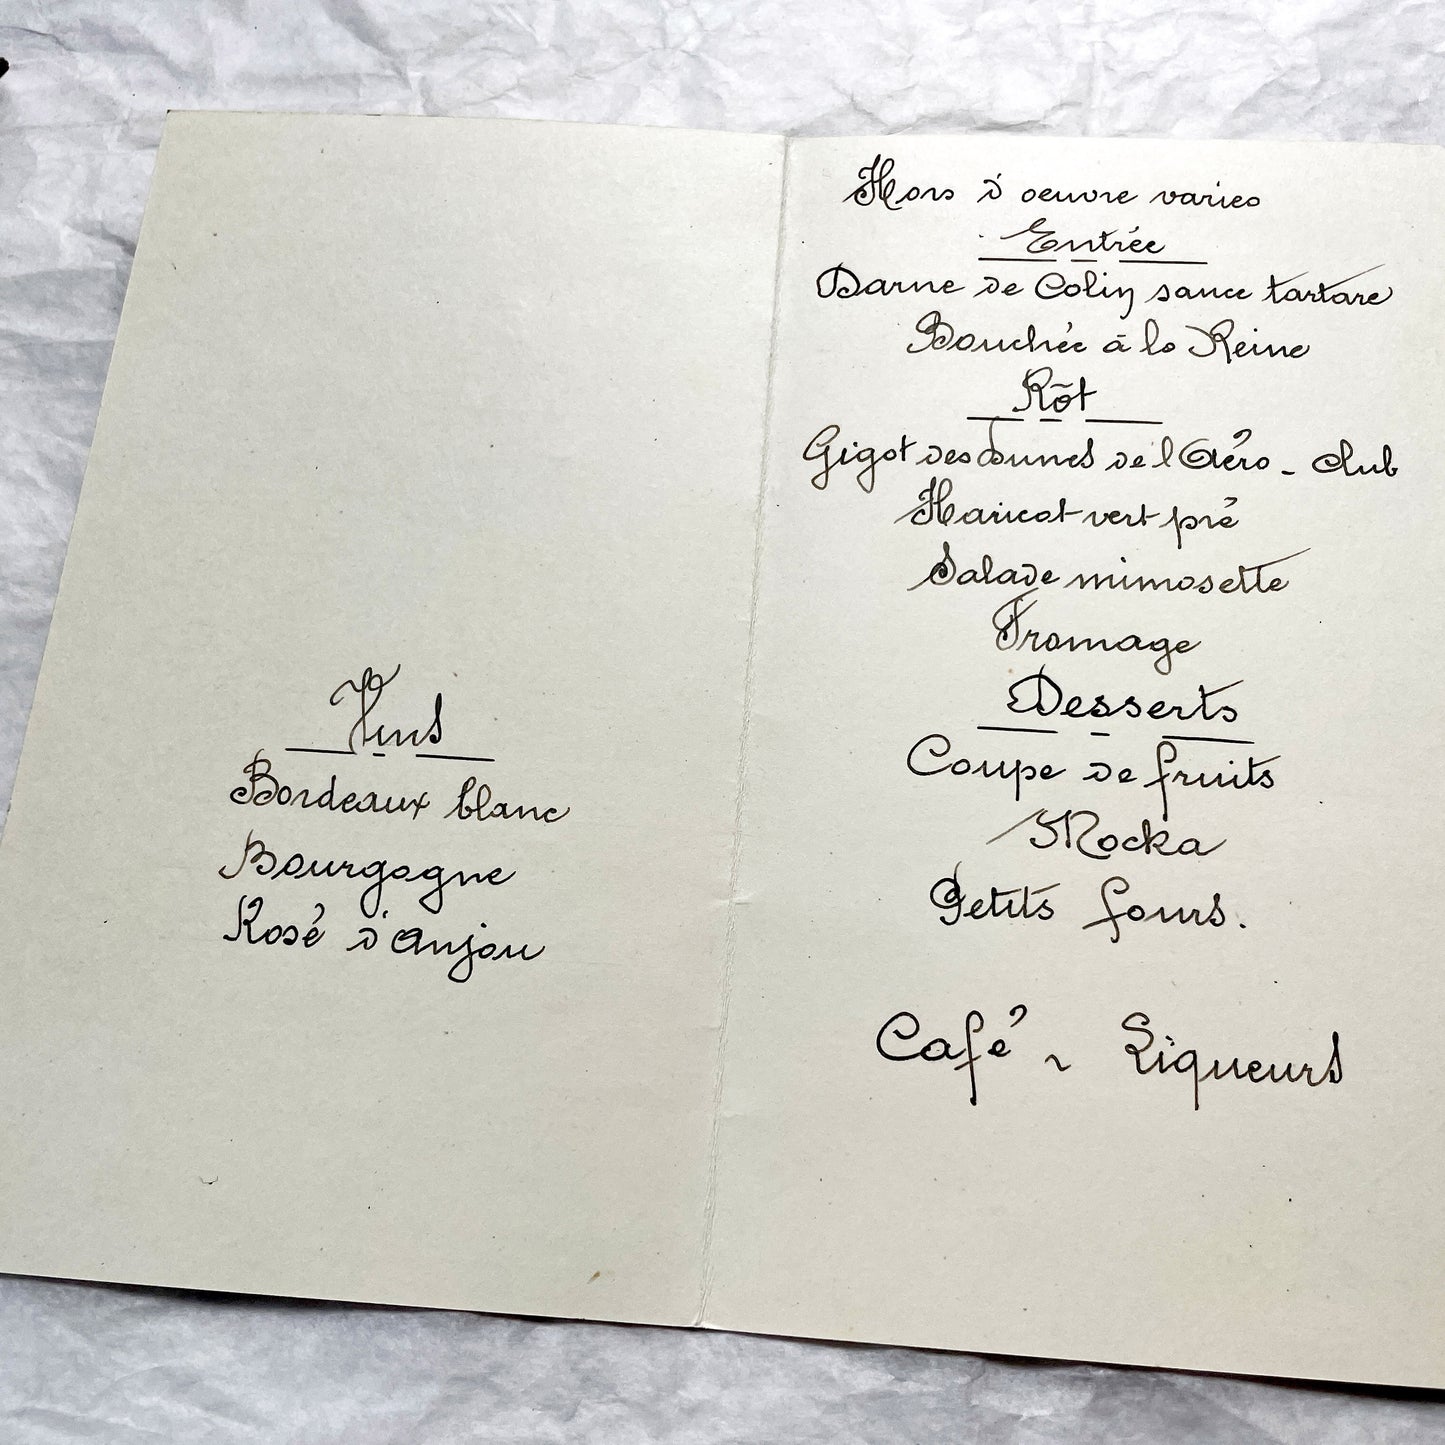 Vins
Bordeaux blanc
Bourgogne
Rosé d'Anjou
Hors d'oeuvre varies
Entrée
Darne de Colin sauce tartare
Bouchée à la Reine
Rôt
Gigot des Dunes de l'Aéro - Club
Haricot vert pré
Salade mimosette
Fromage
Desserts
Coupe de fruits
Mocka
Petits fours.
Café - Liqueurs